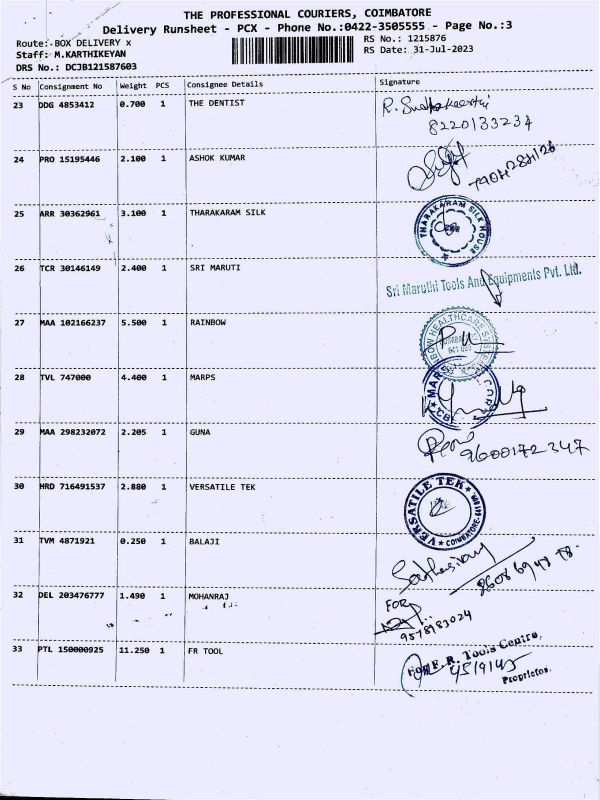 THE PROFESSIONAL COURIERS, COIMBATORE
Delivery Runsheet - PCX - Phone No.:0422-3505555 - Page No.:3
Route: BOX DELIVERY x
RS No.: 1215876
Staff: M.KARTHIKEYAN
RS Date: 31-Jul-2023
DRS No.: DCJB121587603
S No Consignment No Weight PCS Consignee Details Signature
23 DDG 4853412 0.700 1 THE DENTIST
8220133234
24 PRO 15195446 2.100 1 ASHOK KUMAR
25 ARR 30362961 3.100 1 THARAKARAM SILK
THARAKARAM SILK HOUSE
26 TCR 30146149 2.400 1 SRI MARUTI
Sri Maruthi Tools And Equipments Pvt. Ltd.
27 MAA 102166237 5.500 1 RAINBOW
28 TVL 747000 4.400 1 MARPS
29 MAA 298232072 2.205 1 GUNA
9600172347
30 HRD 716491537 2.880 1 VERSATILE TEK
VERSATILE TEK
31 TVM 4871921 0.250 1 BALAJI
32 DEL 203476777 1.490 1 MOHANRAJ
FOR
9578983024
33 PTL 150000925 11.250 1 FR TOOL
For F. R. Tools Centre,
Proprietor.